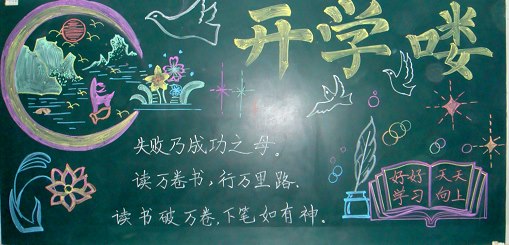 开学喽
失败乃成功之母。
读万卷书,行万里路.
读书破万卷,下笔如有神.
好好
学习
天天
向上